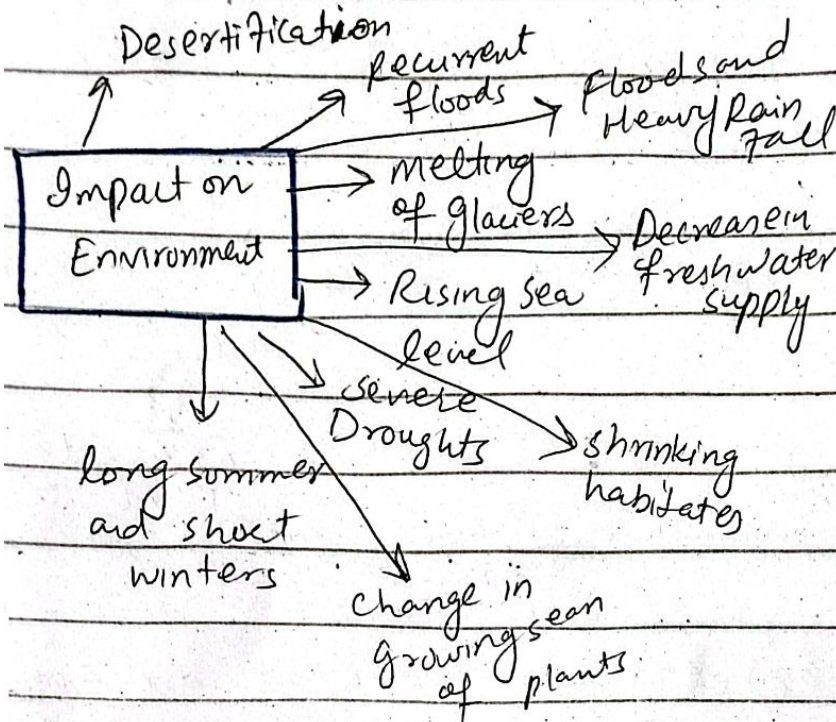 Desertification
Recurrent
floods
Floods and
Heavy Rain
Fall
Impact on
Environment
melting
of glaciers
Decrease in
freshwater
supply
Rising sea
level
severe
Droughts
shrinking
habitates
long summer
and short
winters
change in
growing sean
of plants